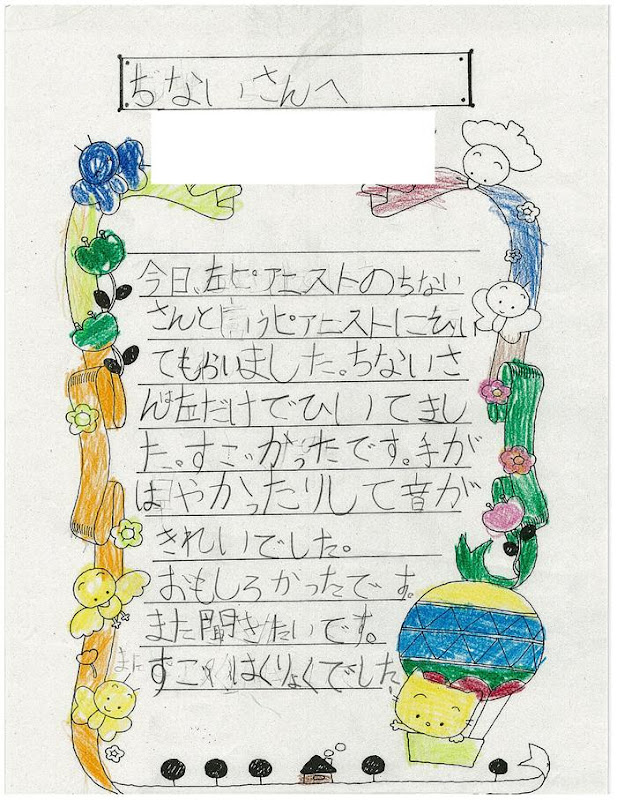 ちないさんへ
今日、左ピアニストのちない
さんと言うピアニストにひい
てもらいました。ちないさ
んは左だけでひいてまし
た。すごかったです。手が
はやかったりして音が
きれいでした。
おもしろかったです。
また聞きたいです。
はくりょくでした